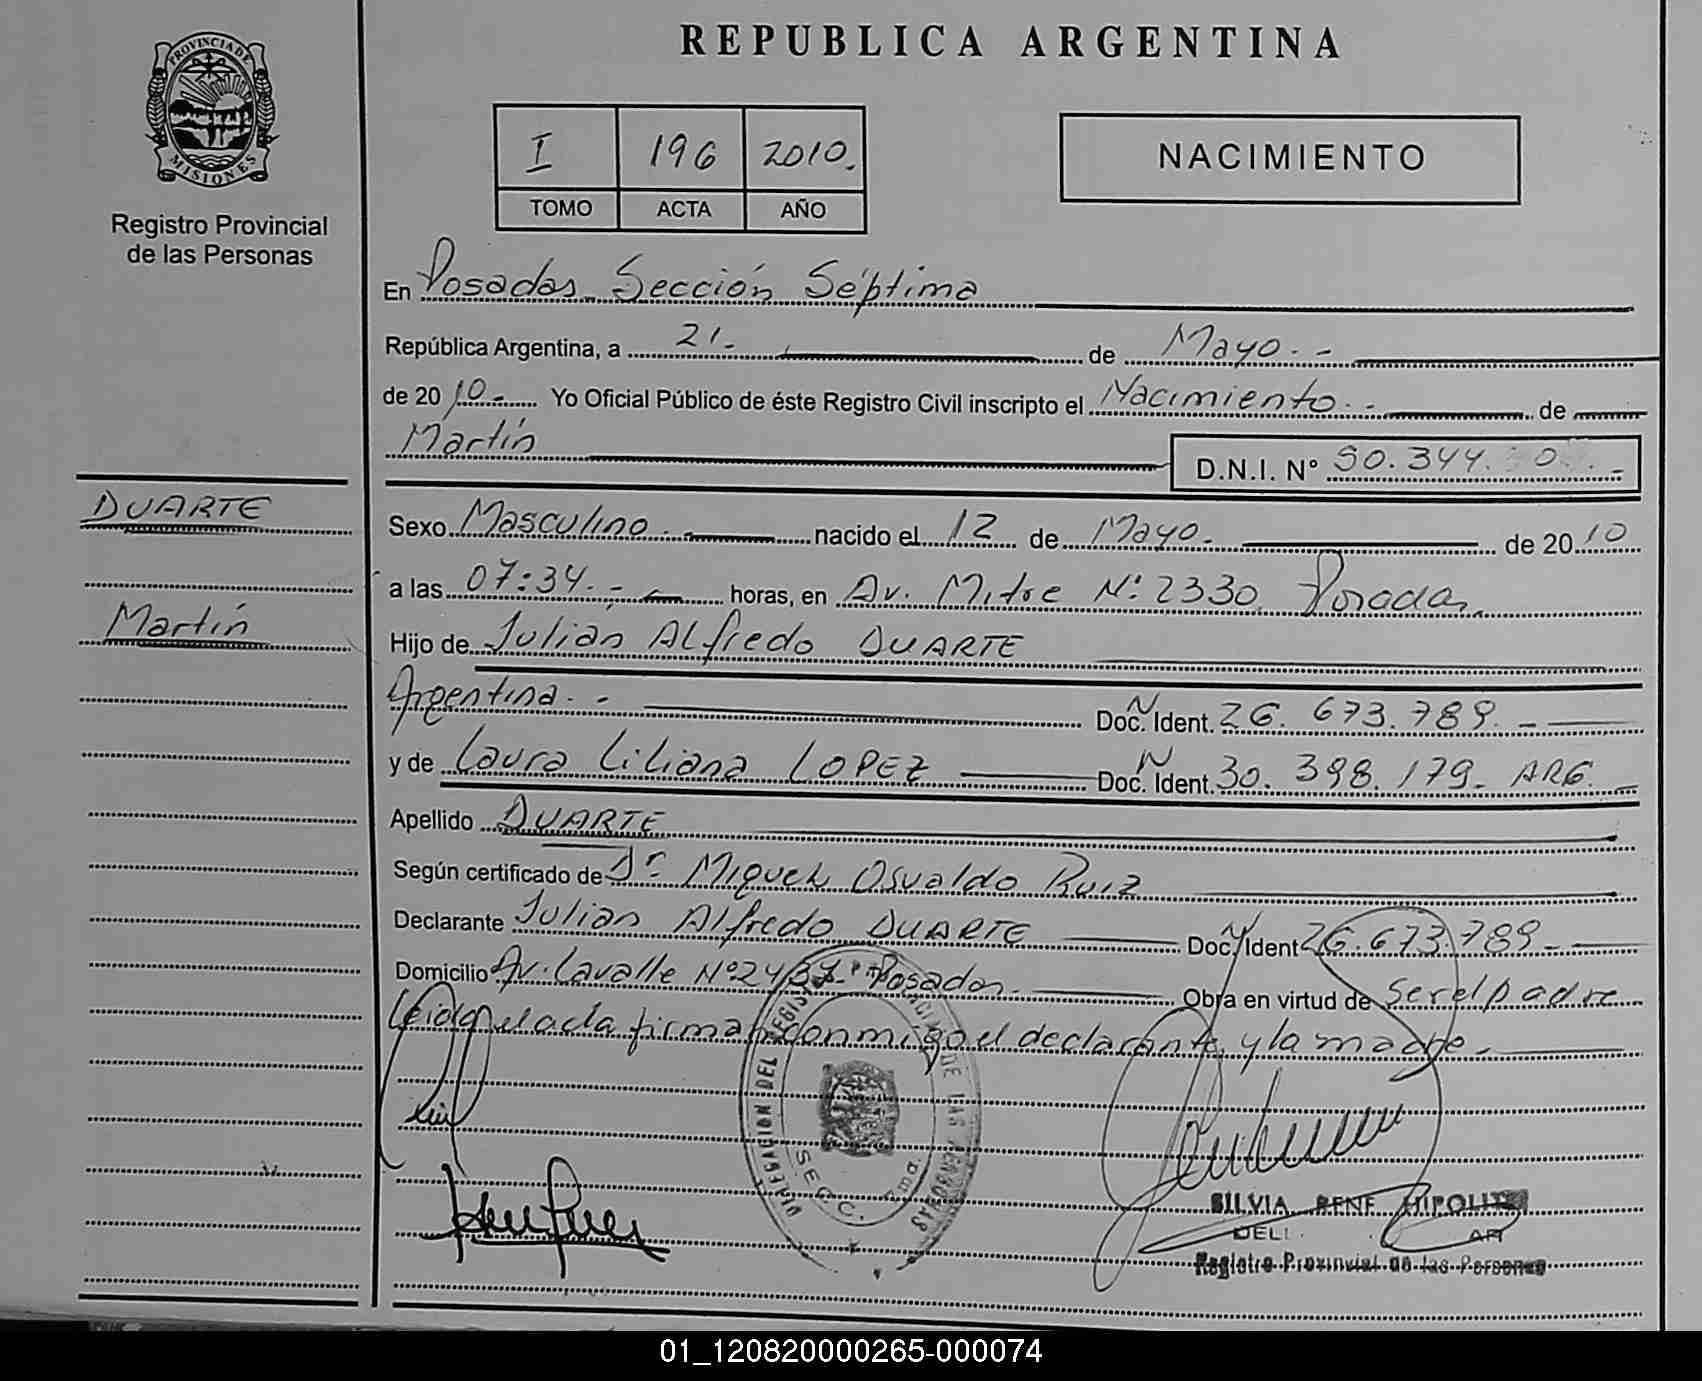 REPUBLICA ARGENTINA
PROVINCIA DE
MISIONES
Registro Provincial
de las Personas
I 196 2010.
TOMO ACTA AÑO
NACIMIENTO
En Posadas Sección Séptima
República Argentina, a 21.- de Mayo.-
de 2010.- Yo Oficial Público de éste Registro Civil inscripto el Nacimiento.- de
Martín
D.N.I. Nº 50.344.
DUARTE
Martín
Sexo Masculino.- nacido el 12 de Mayo.- de 2010
a las 07:34.- horas, en Av. Mitre Nº: 2330, Posadas.
Hijo de Julian ALfredo DUARTE
Argentina.-
Doc. Ident. N 26.673.789.-
y de Laura Liliana LOPEZ Doc. Ident. N 30.398.179. ARG.
Apellido DUARTE
Según certificado de Dr. Miguel Osvaldo Ruiz
Declarante Julian Alfredo DUARTE Doc. Ident N 26.673.789.-
Domicilio Av. Lavalle Nº 2437- Posadas.- Obra en virtud de Ser el padre
Leida el acta firman conmigo el declarante y la madre.-
DELEGACION DEL REGISTRO PROVINCIAL DE LAS PERSONAS
SECC. 7ma.
SILVIA RENE HIPOLITO
Registro Provincial de las Personas
01_120820000265-000074